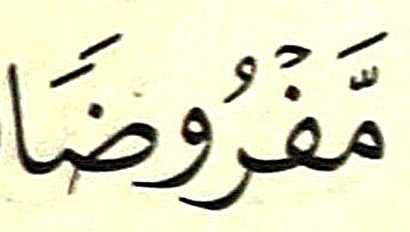 مَّفْرُوضًا